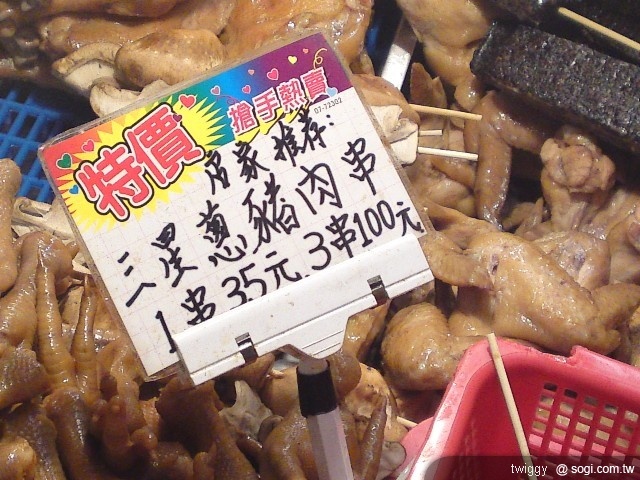 特價
搶手熱賣
07-72302
店家推荐:
三星蔥豬肉串
1串35元 3串100元
twiggy @ sogi.com.tw